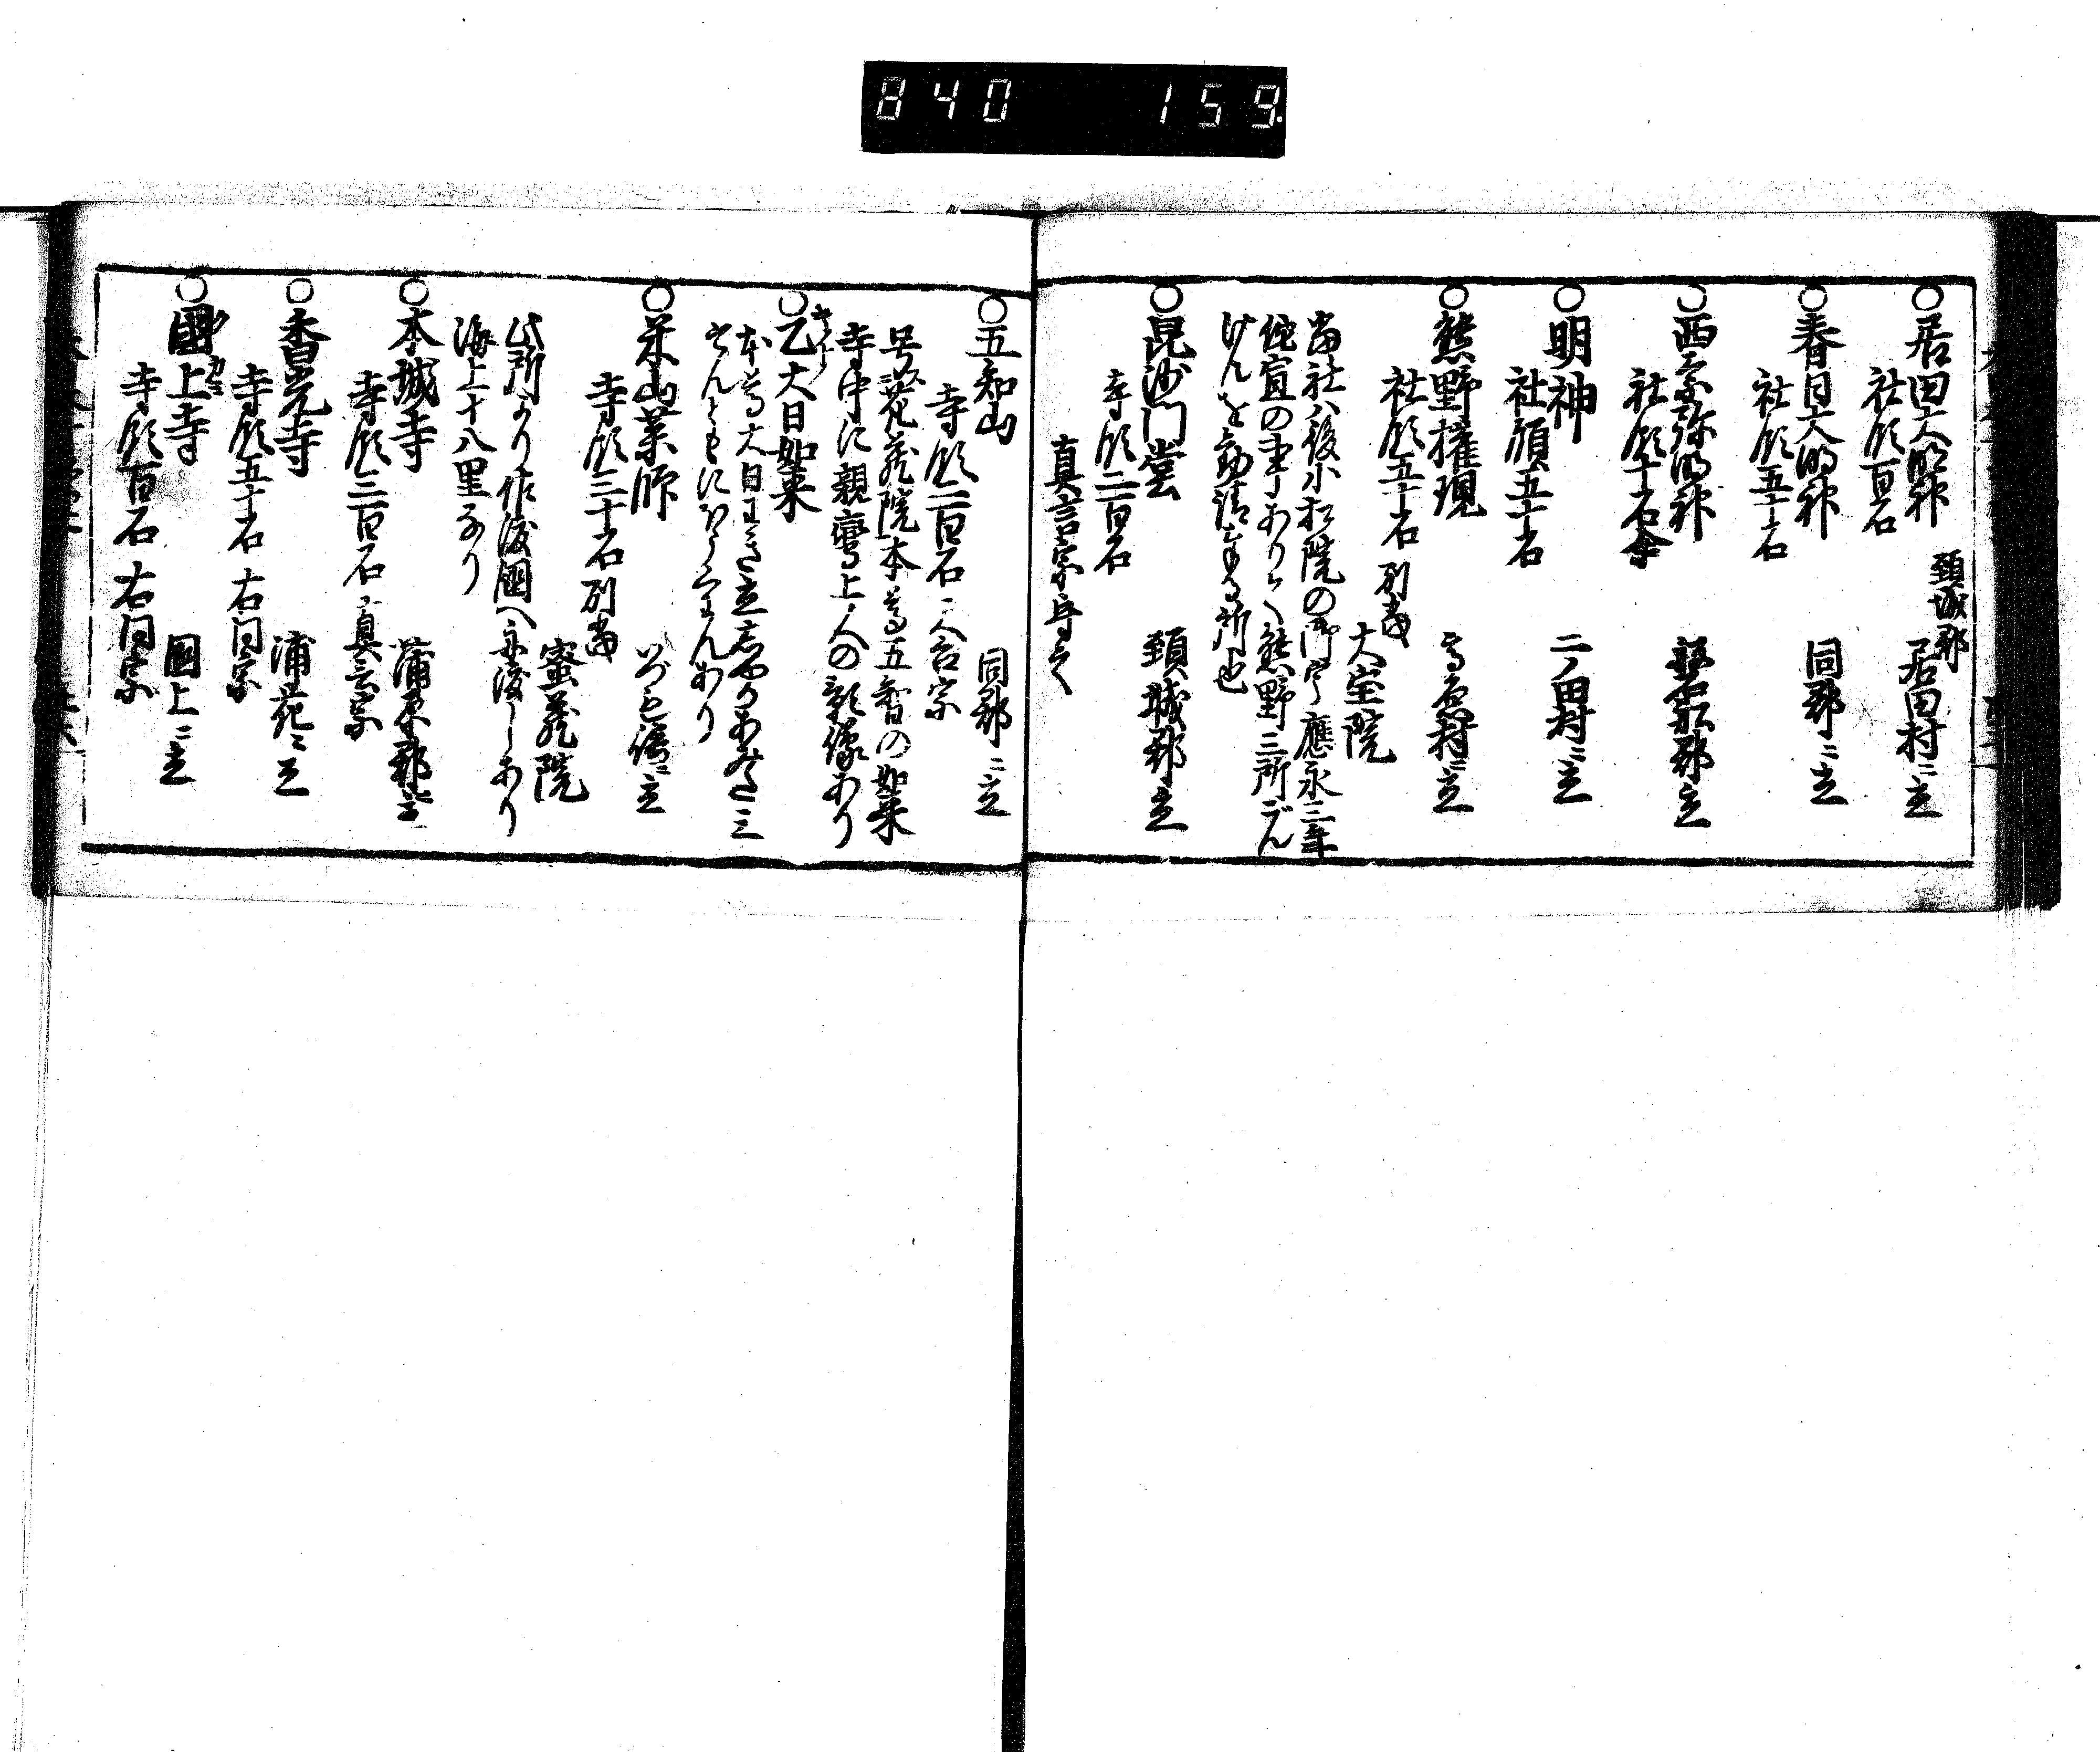 840 159
○居田大明神
頚城郡
居田村ニ立
社領百石
○春日大明神 同郡ニ立
社領五十石
○西奈弥明神 郡立
社領十石余
○明神 二ノ田村ニ立
社領五十石
○熊野権現 村ニ立
社領五十石 別当
大宝院
当社ハ後小松院の御宇應永三年
侘宣の事ありて熊野三所ごん
げんを勧請奉る所也
○毘沙門堂 頚城郡立
寺領二百石
真言宗守之
○五知山 同郡ニ立
寺領二百石 天台宗
号ス花蔵院本尊五智の如来
寺中に親鸞上人の影像あり
○乙大日如来
本尊大日わき立しやかあみだ三
ぞんともに
○米山薬師 立
寺領三十石 別当
蜜蔵院
此所より佐渡国へ舟渡しあり
海上十八里なり
○本城寺 蒲原郡ニ立
寺領三百石 真言宗
○香光寺 蒲花ニ立
寺領五十石 右同宗
○國上寺 國上ニ立
寺領百石 右同宗